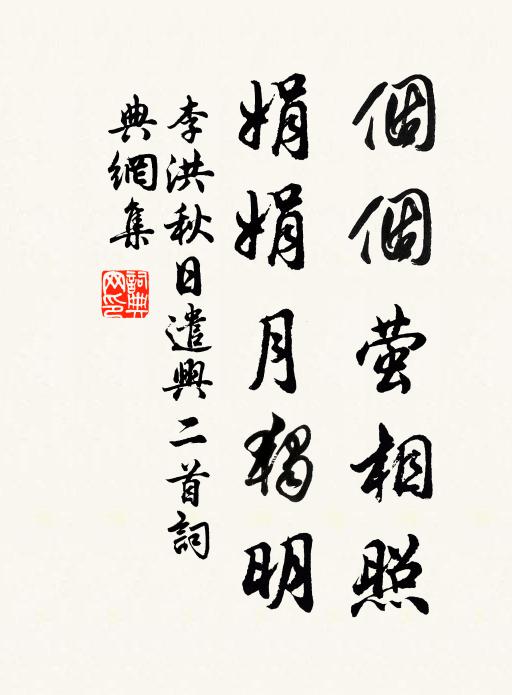 個個萤相照
娟娟月独明
李洪秋日遣興二首詞
典網集
詞典
网印